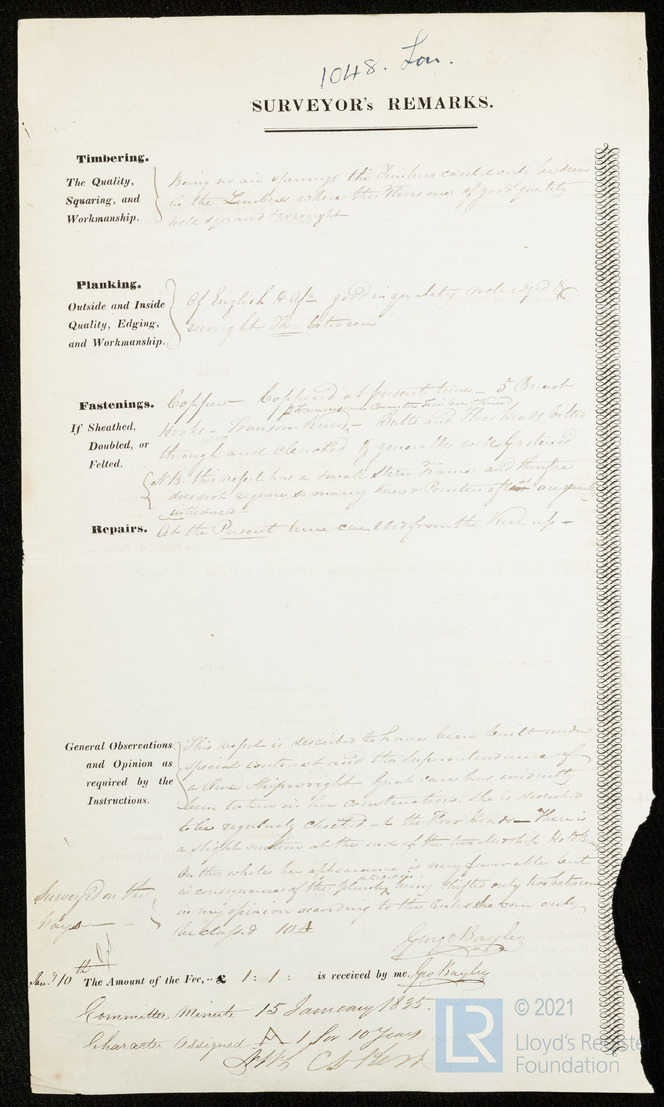 1048. Lon.
SURVEYOR's REMARKS.
Timbering.
The Quality,
Squaring, and
Workmanship.
Being no air openings the Timbers could only be seen
in the Limbers where the Floors are of good quality
well squared & wrought
Planking.
Outside and Inside
Quality, Edging,
and Workmanship.
Of English & Afn good in quality well edged &
wrought Two between
Fastenings.
If Sheathed,
Doubled, or
Felted.
Copper - Coppered at present time - 5 Breast
Hooks - Transom Knees, - Butts and Floor heads bolted
through and clenched & generally well fastened
NB this vessel has a small Stern Frame and therefore
does not require so many Knees & Pointers as are usually
introduced
Repairs.
At the Present time caulked from the Keel up -
General Observations
and Opinion as
required by the
Instructions.
This vessel is described to have been built under
special contract and the Superintendance of
a Shipwright Great care has evidently
been taken in her construction. She is described
to be regularly chocked at the Floor heads - There is
a slight at the end of the
On the whole her appearance is very favorable but
in consequence of the planking being shifted only two between
in my opinion according to the Rules she can only
be classed 10 A
Surveyed on the
Ways
George Bayley
Jany 10th The Amount of the Fee, .. £ 1 : 1 : is received by me, Geo Bayley
Committee Minute 15 January 1835.
Character Assigned A 1 for 10 Years
© 2021
LR
Lloyd's Register
Foundation